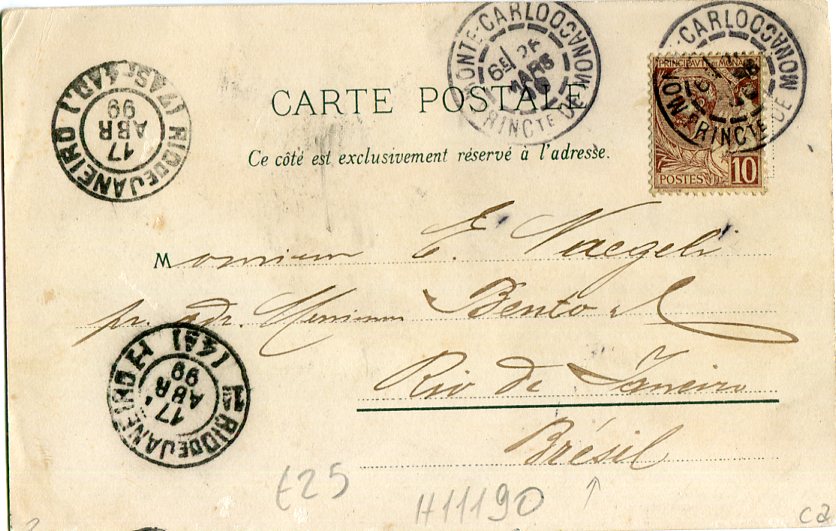 MONTE-CARLO
MONACO
PRINCTE DE
CARTE POSTALE
Ce côté est exclusivement réservé à l'adresse.
PRINCIPAUTÉ DE MONACO
POSTES
10
RIO DE JANEIRO
17
ABR
99
Monsieur E. Naegeli
pr. adr. Messieurs Bento
Rio de Janeiro
Brésil
1a RIO DE JANEIRO
17
ABR
99
£25
H11190
c2